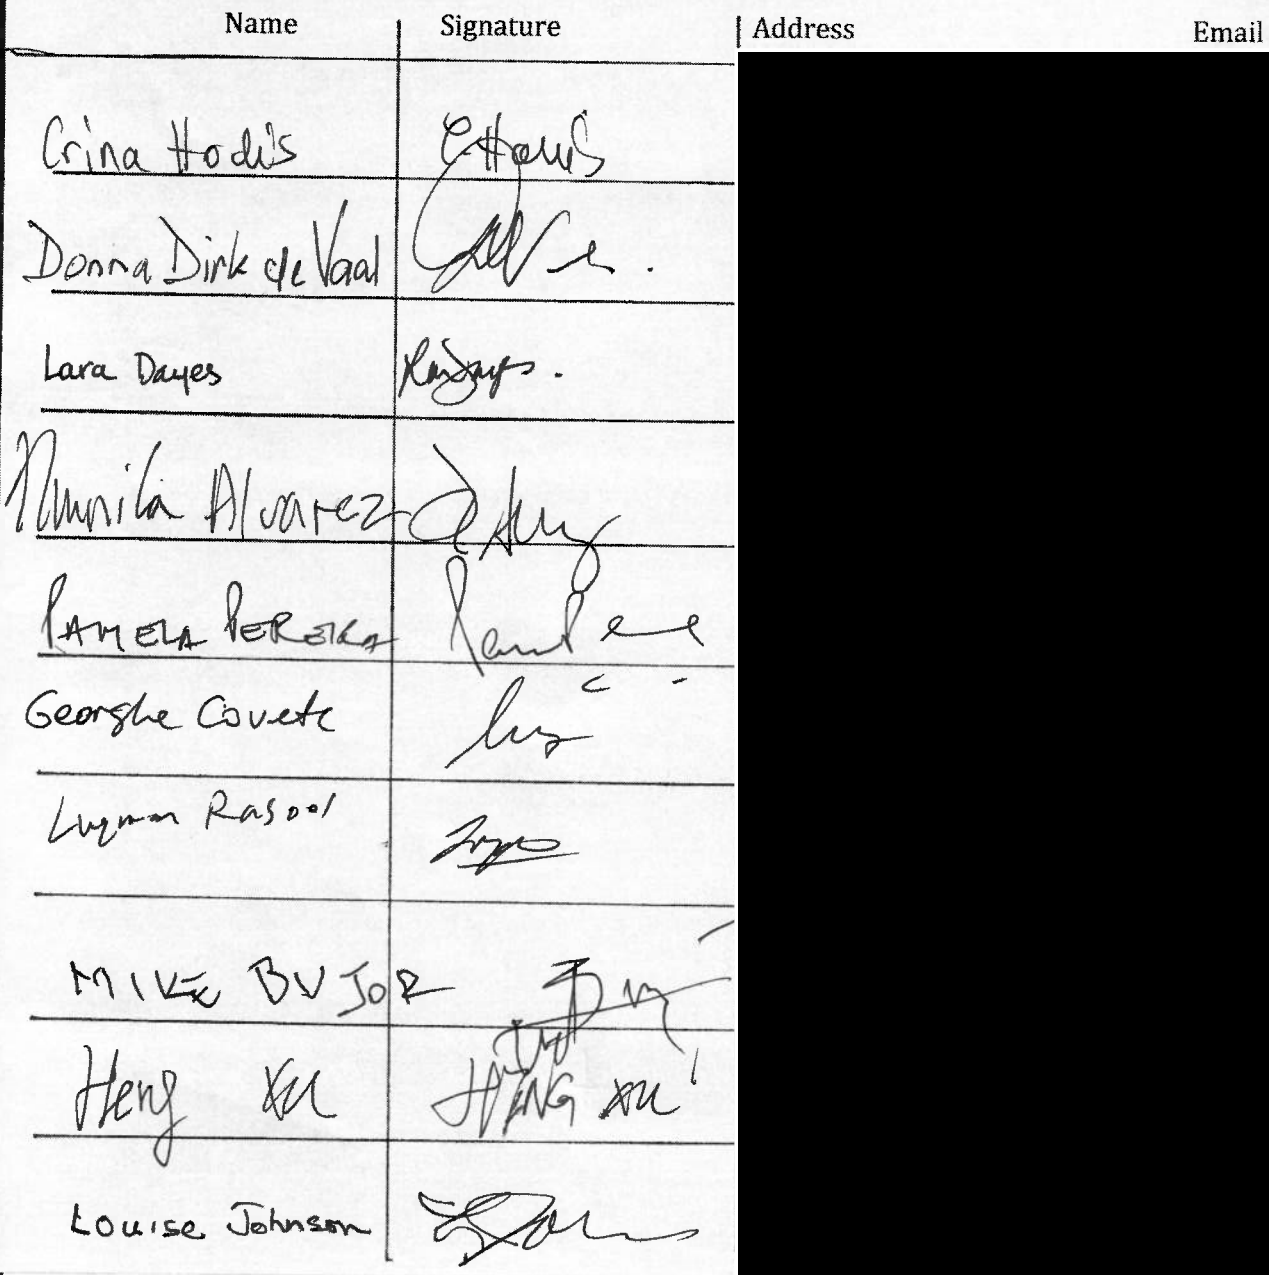 Name Signature Address Email
Crina Hodis CHodis
Donna Dirk de Vaal
Lara Dayes
Alvarez
PAMELA PEREIRA
Georghe
Luqman Rasool
MIKE BUJOR
Heng Xu HENG XU
Louise Johnson